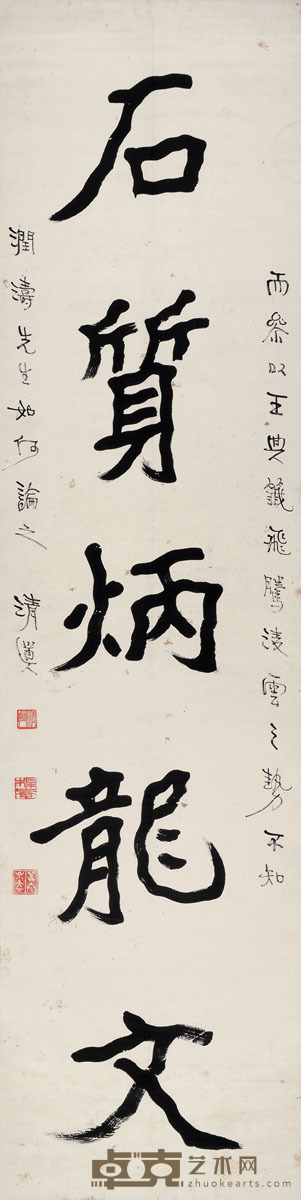 而參以王㒷鐵飛騰淩雲之勢不知
石質炳龍文
潤濤先生如何論之 清道人
卓克艺术网
www.zhuokearts.com